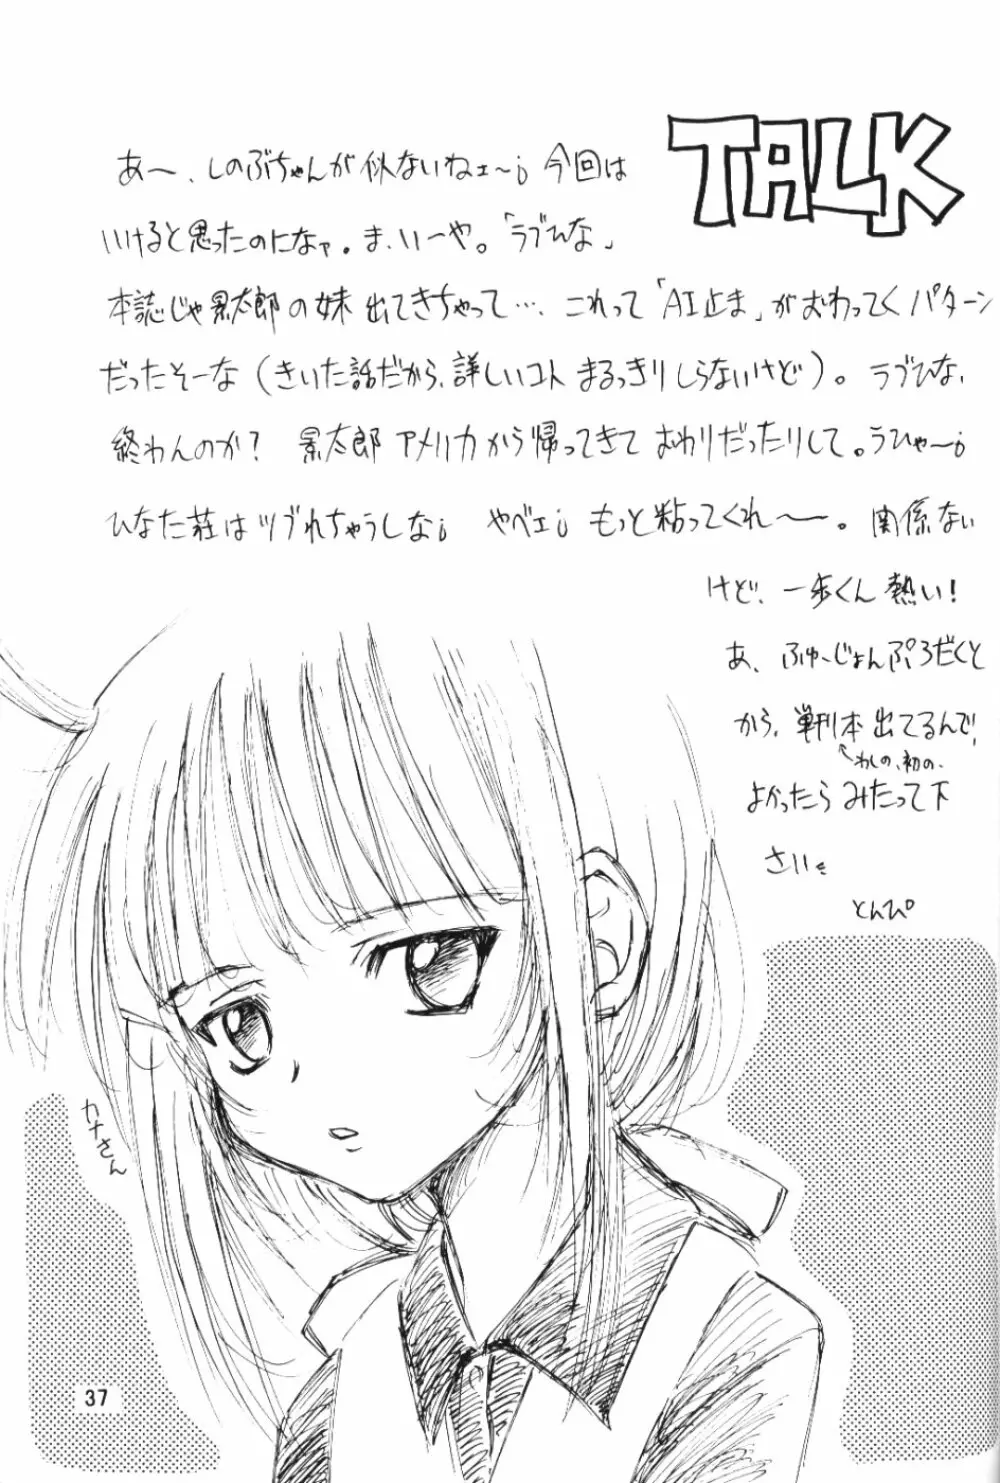 TALK
あ〜、しのぶちゃんが似ないねェ〜；今回は
いけると思ったのになァ。ま、いーや。「ラブひな」
本誌じゃ景太郎の妹出てきちゃって…、これって「AI止ま」がおわってくパターン
だったそーな（きいた話だから、詳しいコトまるっきりしらないけど）。ラブひな、
終わんのか？ 景太郎アメリカから帰ってきておわりだったりして。うひゃ〜；
ひなた荘はツブれちゃうしな； やべェ； もっと粘ってくれ〜。関係ない
けど、一歩くん熱い！
あ、ふゅーじょんぷろだくと
から、単刊本出てるんで、
↖わしの、初の、
よかったらみたって下
さい
とんぴ
カナさん
37